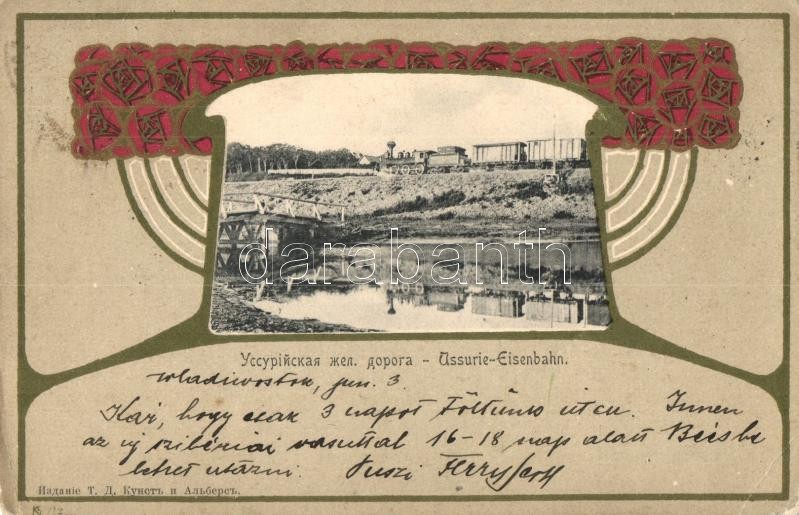 darabanth
Уссурійская жел. дорога – Ussurie-Eisenbahn.
Wladiwostok, jun. 3
Kár, hogy csak 3 napot töltünk itten. Innen
az új szibériai vasúttal 16-18 nap alatt Bécsbe
lehet utazni. Puszi
Изданіе Т. Д. Кунстъ и Альберсъ.